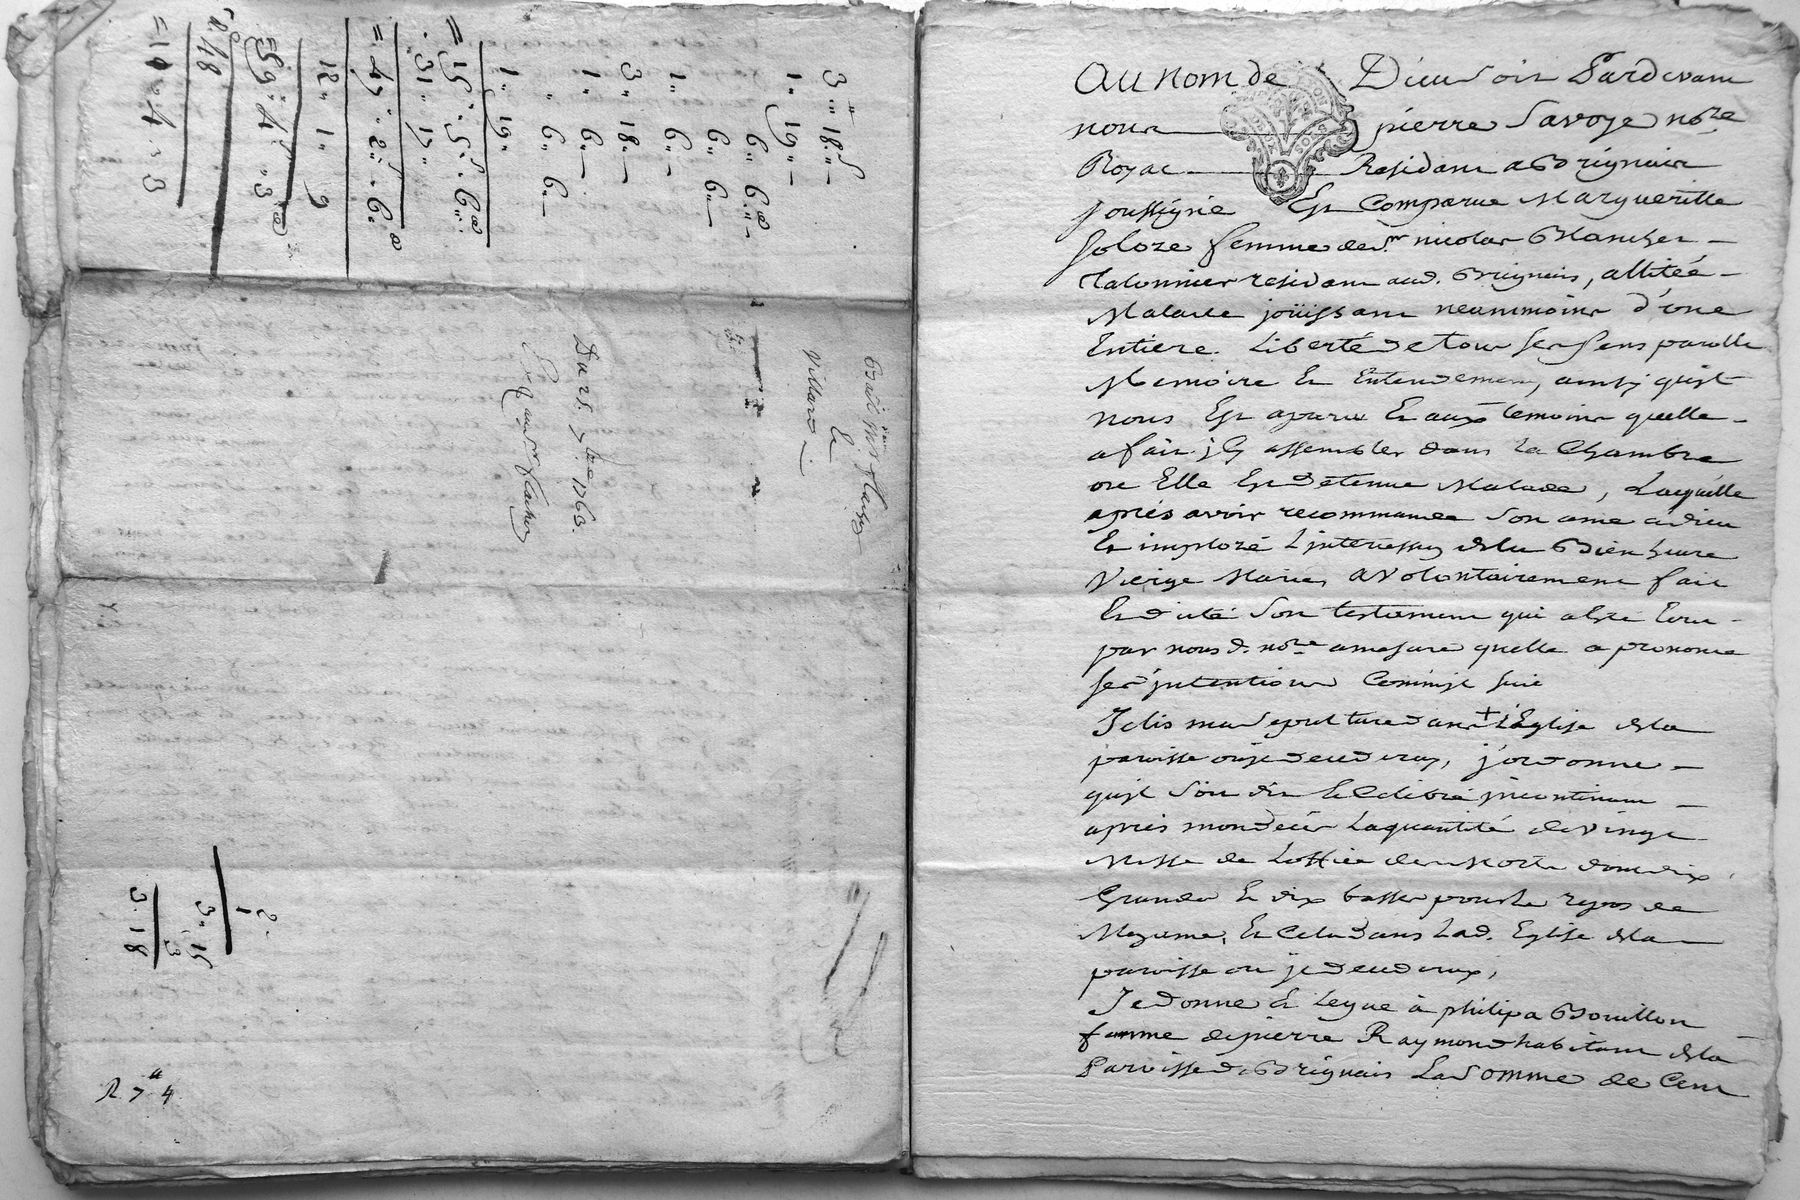 3" 18s "
1" 19" —
6" 6d
1" 6" —
6" 6"
3" 18" —
1" 6" —
" 6" 6
1" 19"
= 15" 5s " 6d
31" 17"
= 47" 2s " 6d
12" 1" 9
= 59" 4s " 3d
48
= 1 4 3
Villard
Du 25. 7bre 1763.
2
1
3" 15
3
3. 18
R 7" 4
Au nom de Dieu soit Pardevant
nous pierre Savoye nore
Royal Residant a Brignais
soussigné Est Comparue Margueritte
Soloze femme de sr nicolas Blanchet
Talonnier residant aud. Brignais, allitée
Malade joüissant neanmoins d'une
Entiere Liberté de tous ses sens parolle
Memoire Et Entendement, ainsy quil
nous Est aparu Et aux temoins quelle
a fait jcy assembler dans la Chambre
ou Elle Est detenue Malade, Laquelle
aprés avoir recommandé son ame a dieu
Et imploré L'jntercession dela Bien heure
Vierge Marie, a Volontairement fait
Et dicté Son testament qui a Esté Ecrit
par nous d. nore amesure quelle a prononcé
ses jntentions Comm'jl suit
J'elis ma Sepulture dans L'Eglise dela
paroisse ou je decederay, j'ordonne
quil soit dit Et Celebré jncontinent
aprés mon decés La quantité de Vingt
Messe de Loffice des Morts dont dix
Grandes Et dix basses pour le repos de
Mon ame, Et Cela dans Lad. Eglise dela
paroisse ou je decederay,
Je donne Et Legue à philipa Bouillon
femme de pierre Raymond habitant dela
Paroisse de Brignais La Somme de Cent